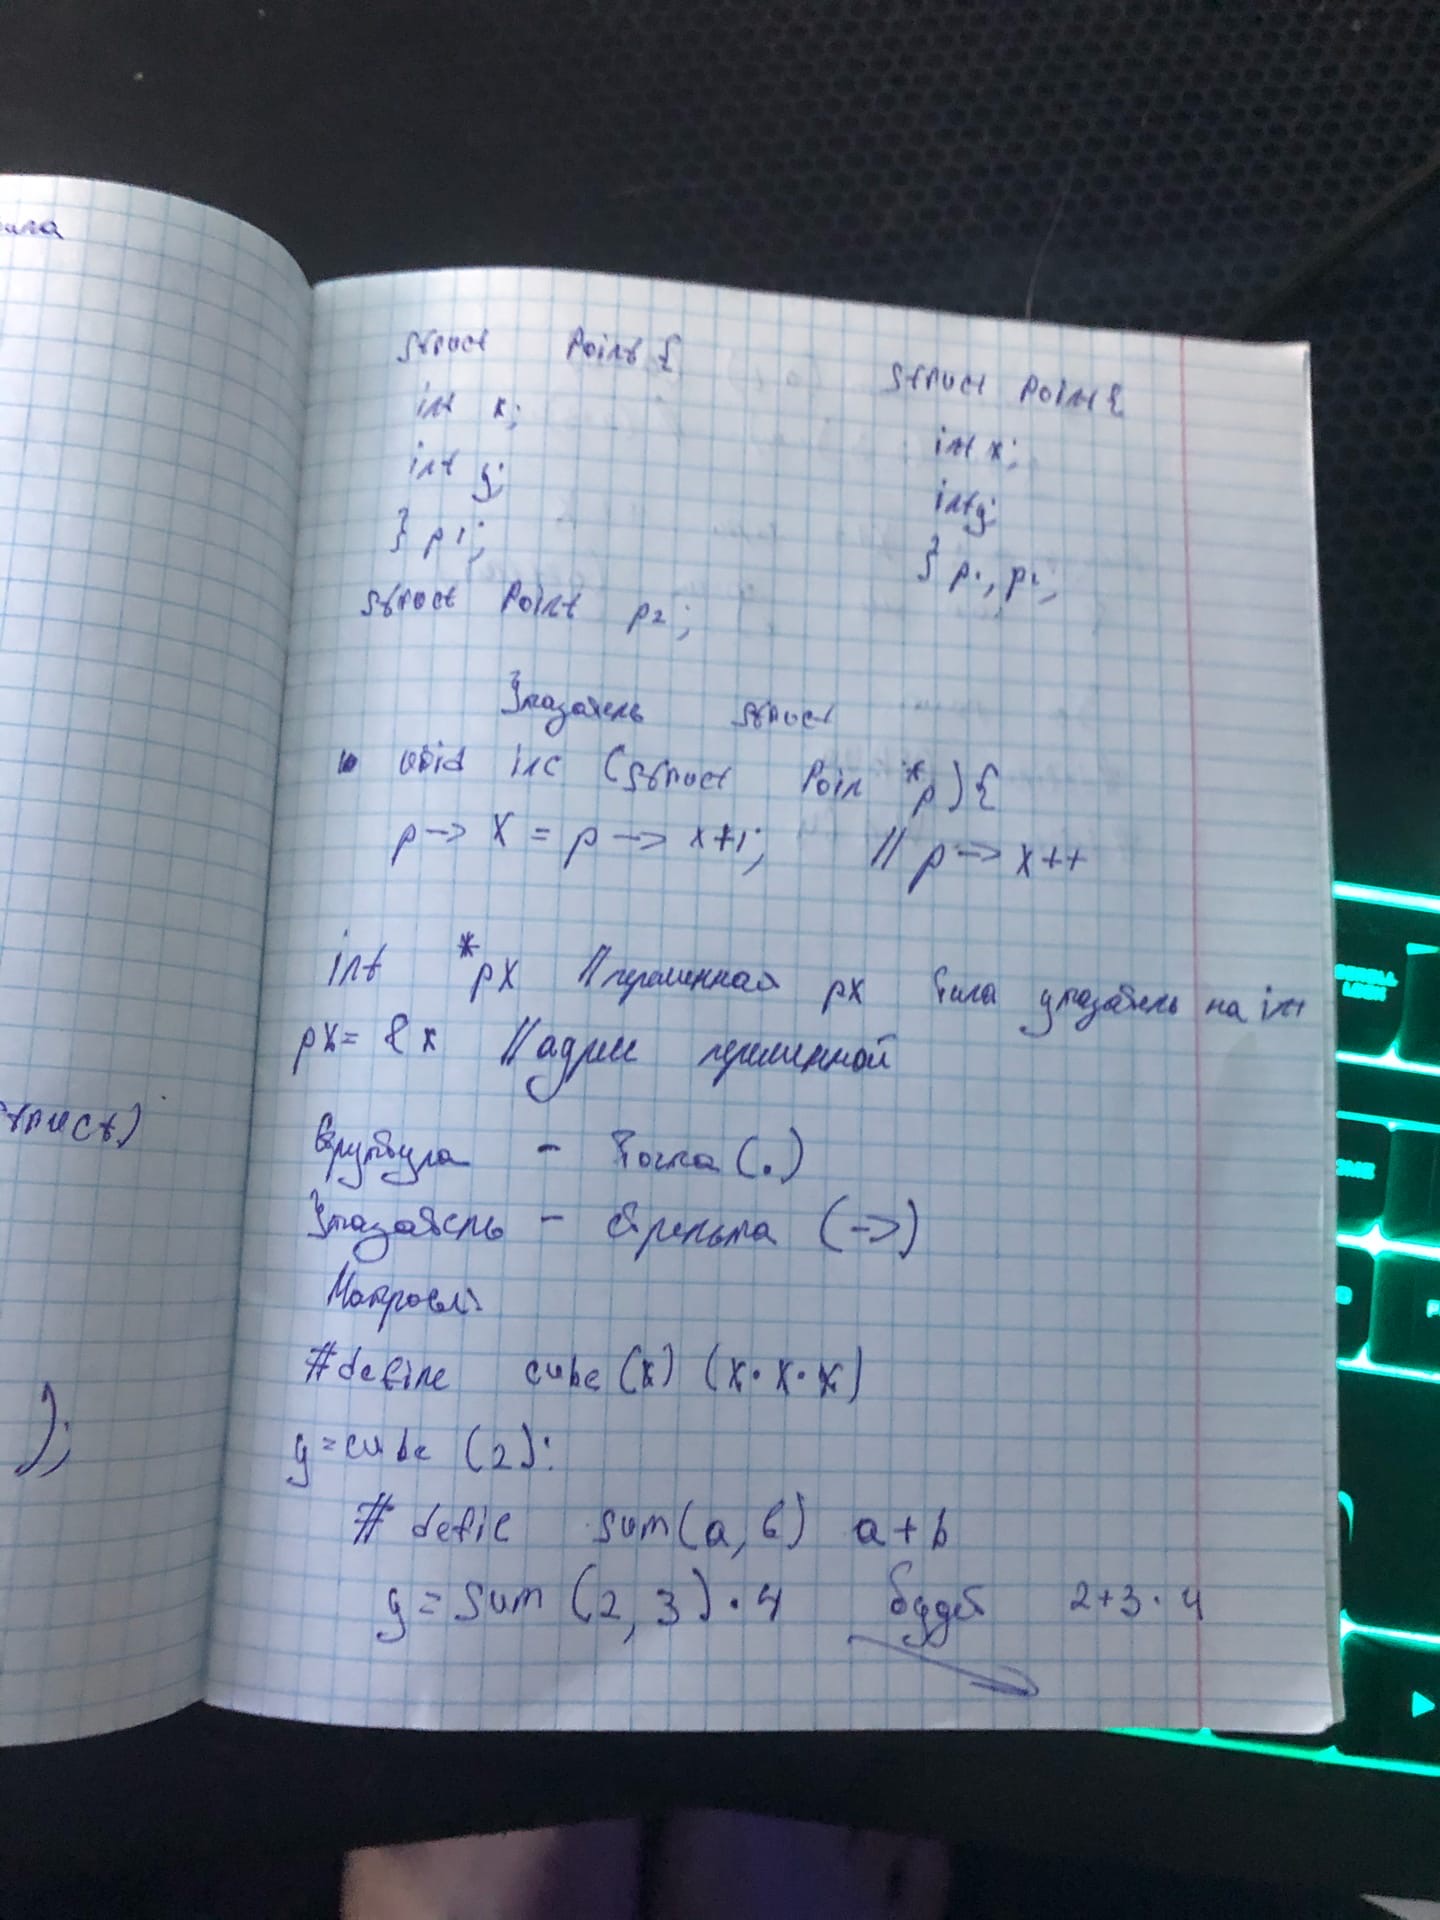 struct)
);
struct Point {
int x;
int y;
} p1;
struct Point p2;
struct Point {
int x;
int y;
} p1, p2;
Указатель struct
void inc (struct Poin *p) {
p -> x = p -> x+1; // p -> x++
int *px // переменная px типа указатель на int
px = &x // адрес переменной
Структура - точка (.)
Указатель - стрелка (->)
Макросы:
#define cube(x) (x·x·x)
y = cube (2);
# defie sum(a, b) a+b
y = sum (2, 3)·4 будет 2+3·4
SCROLL
LOCK